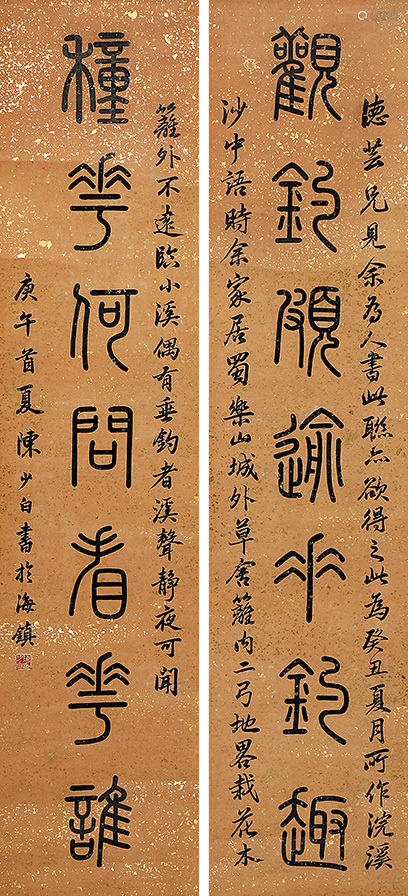 德芸兄見余為人書此聯亦欲得之此為癸丑夏月所作浣溪
觀釣頗逾垂釣趣
沙中語時余家居蜀樂山城外草舍籬內二弓地畧栽花木
籬外不遠臨小溪偶有垂釣者溪聲靜夜可聞
種花何問看花誰
庚午首夏陳少白書於海鎮